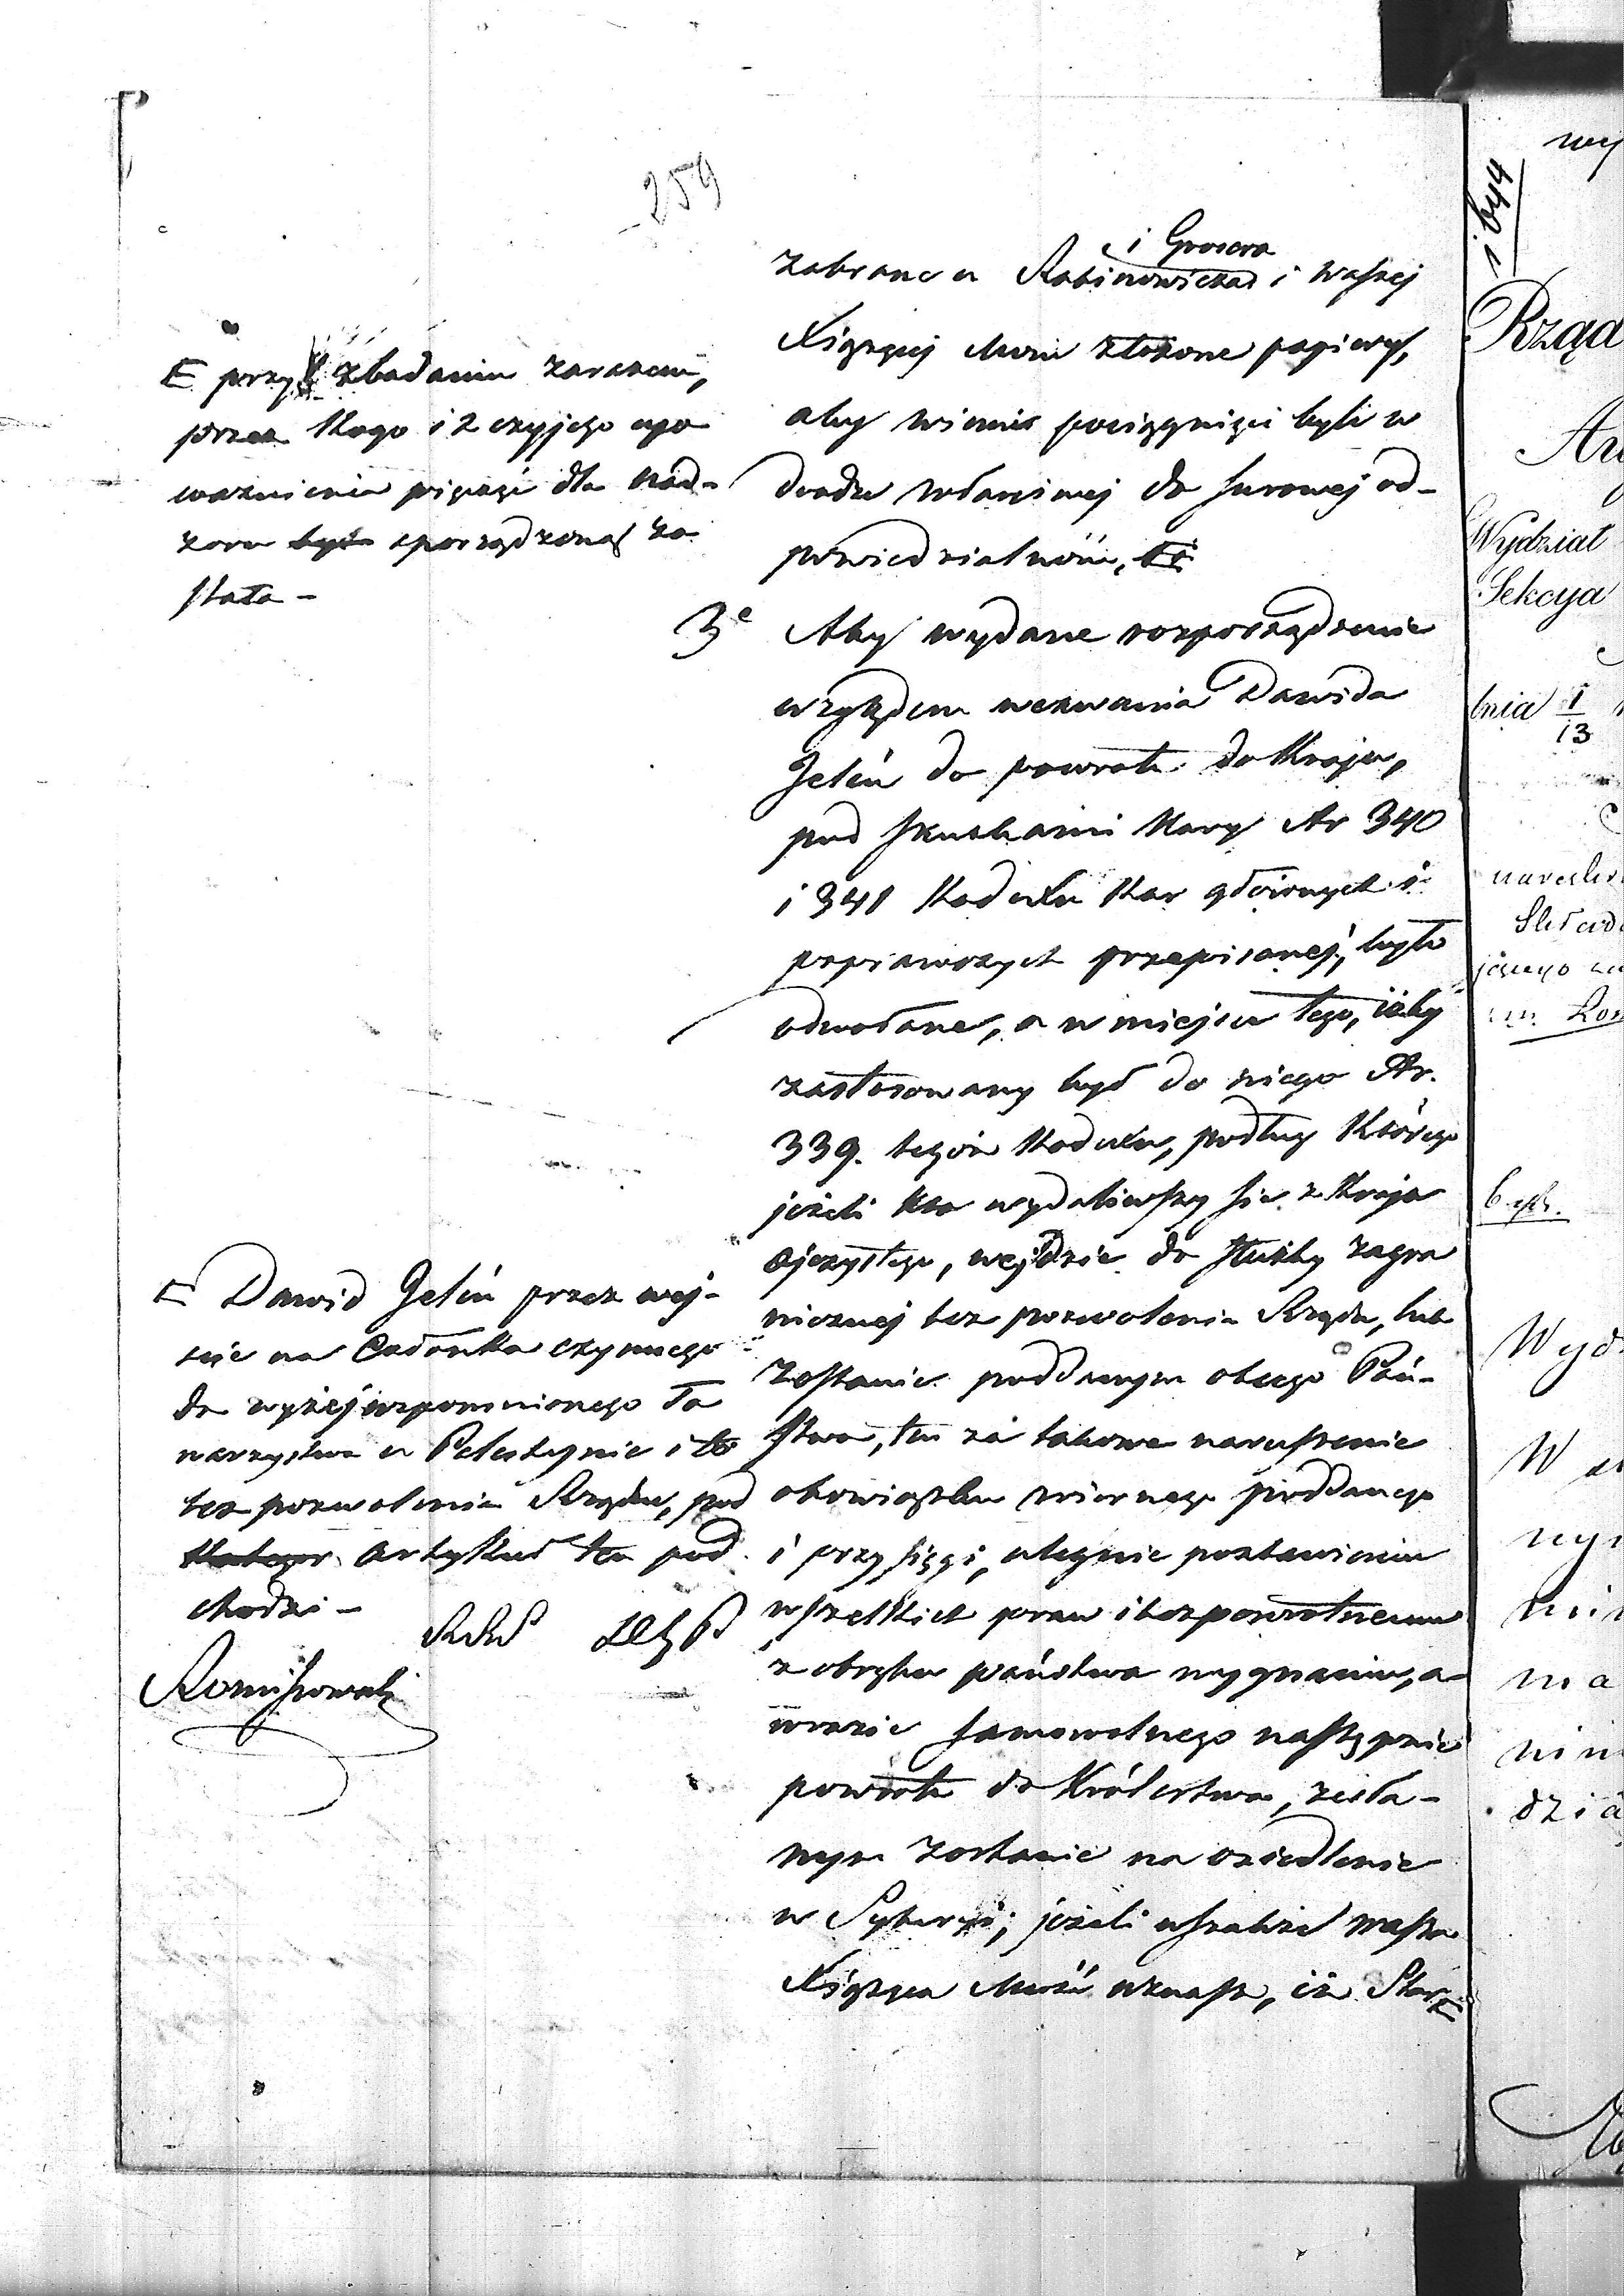 259
i Grosera
zabrane u Rabinowicza i Waszej
Xiążęcej Mości złożone papiery,
aby winni pociągnięci byli w
drodze właściwej do surowej od-
powiedzialności,
przy zbadaniu zarazem,
przez kogo i z czyjego upo
ważnienia pieczęć dla nad-
zoru było sporządzoną zo
stała -
3e Aby wydane rozporządzenie
względem wezwania Dawida
Jeleń do powrotu do Kraju,
pod skutkami Kary Ar 340
i 341 Kodexu Kar głównych i
poprawczych przepisanej, było
odwołane, a w miejscu tego, iżby
zastosowany był do niego Ar.
339. tegoż Kodexu, podług którego
jeżeli kto wydaliwszy się z Kraju
ojczystego, wejdzie do służby zagra
nicznej bez pozwolenia Rządu, lub
zostanie poddanym obcego Pań-
stwa, ten za takowe naruszenie
obowiązku wiernego poddanego
i przysięgi, ulegnie pozbawieniu
wszelkich praw i bezpowrotnemu
z obrębu państwa wygnaniu, a
w razie samowolnego następnie
powrotu do Królestwa, zesła-
nym zostanie na osiedlenie
w Syberyi; jeżeli wszakże Wasza
Xiążęca Mość uznasz, iż Star
Dawid Jeleń przez wej-
ście na Członka czynnego
do wyżej wspomnionego To
warzystwa w Palestynie i to
bez pozwolenia Rządu, pod
artykuł ten pod
chodzi -
i byq
wy
Rząd
Wydział
Sekcya
lnia 1/13
Wyd
W
nyn
ma
nin
dzia